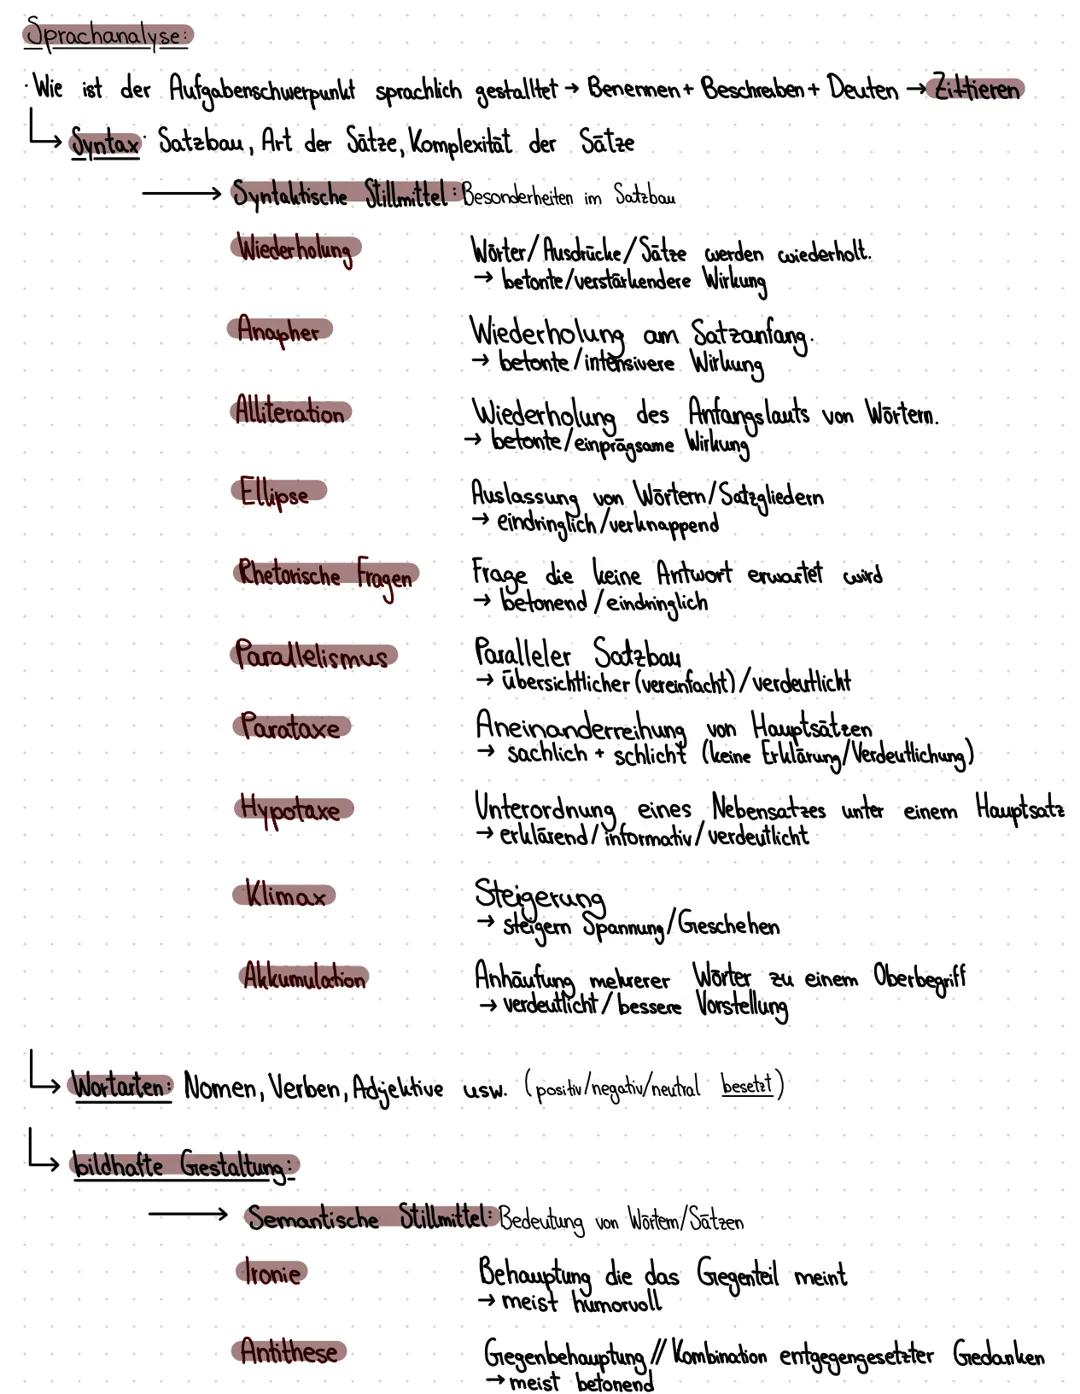 Sprachanalyse:
· Wie ist der Aufgabenschwerpunkt sprachlich gestalltet → Benennen + Beschreiben + Deuten → Zittieren
→ Syntax: Satzbau, Art der Sätze, Komplexität der Sätze
→ Syntaktische Stillmittel: Besonderheiten im Satzbau
Wiederholung Wörter/Ausdrücke/Sätze werden wiederholt.
→ betonte/verstärkendere Wirkung
Anapher Wiederholung am Satzanfang.
→ betonte/intensivere Wirkung
Alliteration Wiederholung des Anfangslauts von Wörtern.
→ betonte/einprägsame Wirkung
Ellipse Auslassung von Wörtern/Satzgliedern
→ eindringlich/verknappend
Rhetorische Fragen Frage die keine Antwort erwartet wird
→ betonend/eindringlich
Parallelismus Paralleler Satzbau
→ übersichtlicher (vereinfacht)/verdeutlicht
Parataxe Aneinanderreihung von Hauptsätzen
→ sachlich + schlicht (keine Erklärung/Verdeutlichung)
Hypotaxe Unterordnung eines Nebensatzes unter einem Hauptsatz
→ erklärend/informativ/verdeutlicht
Klimax Steigerung
→ steigern Spannung/Geschehen
Akkumulation Anhäufung mehrerer Wörter zu einem Oberbegriff
→ verdeutlicht/bessere Vorstellung
→ Wortarten: Nomen, Verben, Adjektive usw. (positiv/negativ/neutral besetzt)
→ bildhafte Gestaltung:
→ Semantische Stillmittel: Bedeutung von Wörtern/Sätzen
Ironie Behauptung die das Gegenteil meint
→ meist humorvoll
Antithese Gegenbehauptung // Kombination entgegengesetzter Gedanken
→ meist betonend